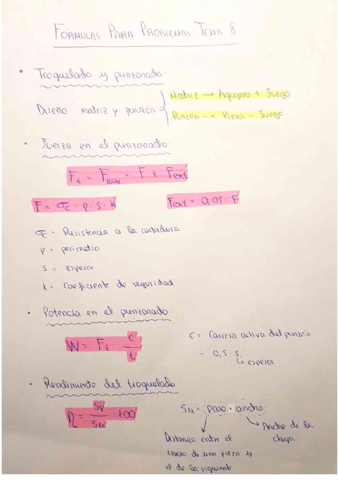 FÓRMULAS PARA PROBLEMAS TEMA 8
• Troquelado y punzonado:
Diseño matriz y punzón { Matriz → Agujero + Juego
Punzón → Pieza - Juego
• Fuerza en el punzonado:
Ft = F + Fext
F = σc · p · s · k
Fext = 0,05 · F
σc - Resistencia a la cortadura
p - perímetro
s = espesor
k - Coeficiente de seguridad
• Potencia en el punzonado:
W = Ft · c/t
c = Carrera activa del punzón
= 0,5 · s
↳ espesor
• Rendimiento del troquelado
η = Sp/Su · 100
Su = paso · ancho
↳ Ancho de la chapa
Distancia entre el
inicio de una pieza y
el de la siguiente